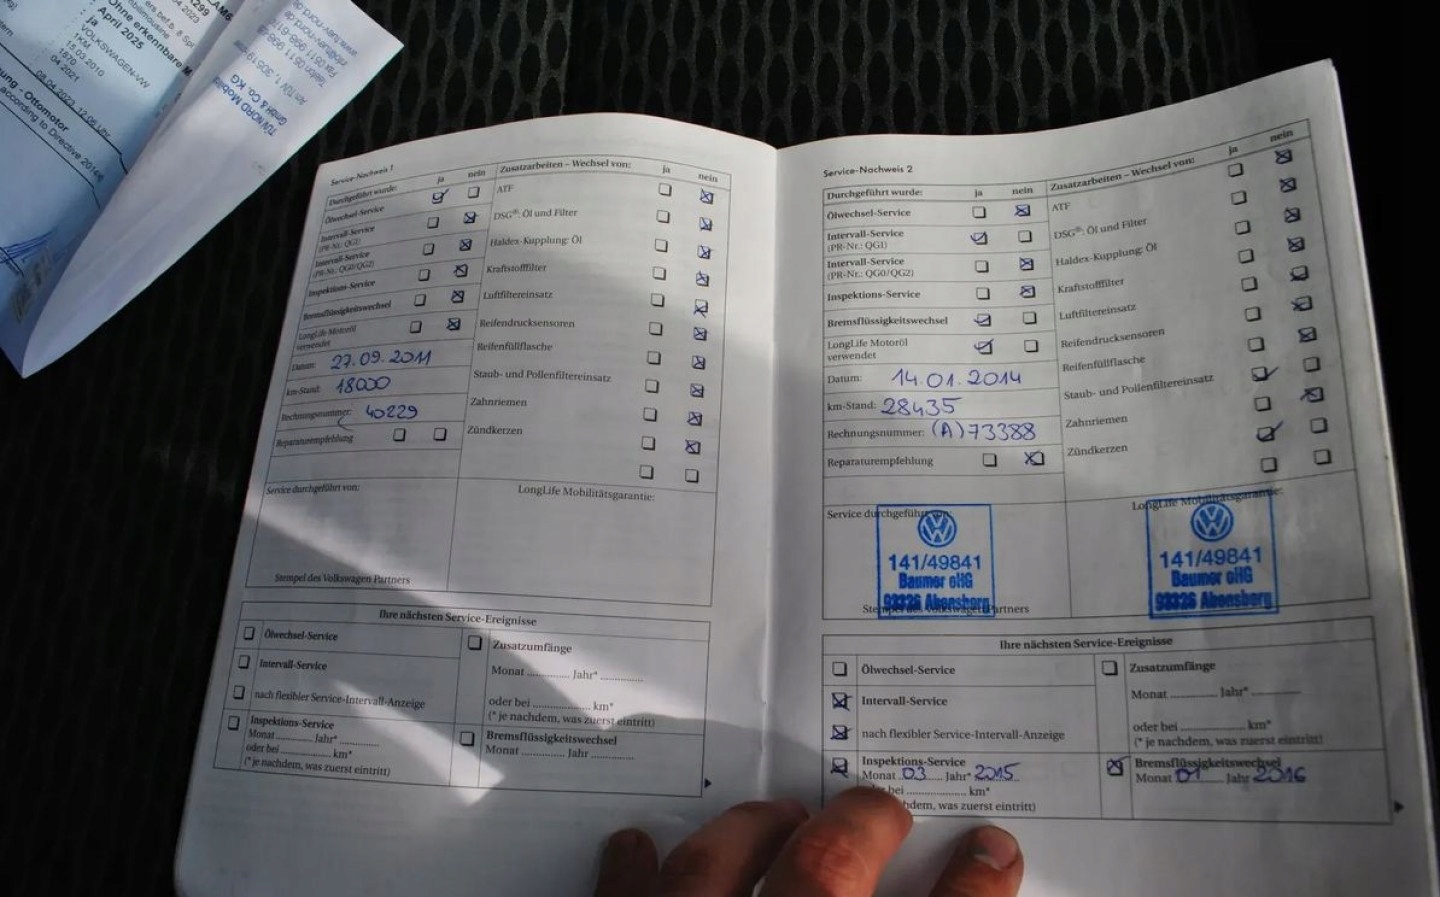 LAM6
299
04.2023
ers.bef.b. 8 Spl
mbelmousine
Ohne erkennbare M
April 2025
ja
VOLKSWAGEN-VW
1KM
15.03.2010
1670
04.2021
08.04.2023, 12:06 Uhr
ung - Ottomotor
according to Directive 2014/
TÜV NORD Mobil
GmbH & Co. KG
Am TÜV 1, 30519
Telefon 0511 998-6
Fax 0511 998-61
Service-Nachweis 1
Durchgeführt wurde: ja nein
Ölwechsel-Service
Intervall-Service
(PR-Nr.: QG1)
Intervall-Service
(PR-Nr.: QG0/QG2)
Inspektions-Service
Bremsflüssigkeitswechsel
LongLife Motoröl
verwendet
Datum: 27.09.2011
km-Stand: 18000
Rechnungsnummer: 40229
Reparaturempfehlung
Zusatzarbeiten – Wechsel von: ja nein
ATF
DSG®: Öl und Filter
Haldex-Kupplung: Öl
Kraftstofffilter
Luftfiltereinsatz
Reifendrucksensoren
Reifenfüllflasche
Staub- und Pollenfiltereinsatz
Zahnriemen
Zündkerzen
Service durchgeführt von:
LongLife Mobilitätsgarantie:
Stempel des Volkswagen Partners
Ihre nächsten Service-Ereignisse
Ölwechsel-Service
Intervall-Service
nach flexibler Service-Intervall-Anzeige
Inspektions-Service
Monat ............ Jahr* ............
oder bei .................. km*
(* je nachdem, was zuerst eintritt)
Zusatzumfänge
Monat ............ Jahr* ............
oder bei .................. km*
(* je nachdem, was zuerst eintritt)
Bremsflüssigkeitswechsel
Monat ............ Jahr ............
Service-Nachweis 2
Durchgeführt wurde: ja nein
Ölwechsel-Service
Intervall-Service
(PR-Nr.: QG1)
Intervall-Service
(PR-Nr.: QG0/QG2)
Inspektions-Service
Bremsflüssigkeitswechsel
LongLife Motoröl
verwendet
Datum: 14.01.2014
km-Stand: 28435
Rechnungsnummer: (A)73388
Reparaturempfehlung
Zusatzarbeiten – Wechsel von: ja nein
ATF
DSG®: Öl und Filter
Haldex-Kupplung: Öl
Kraftstofffilter
Luftfiltereinsatz
Reifendrucksensoren
Reifenfüllflasche
Staub- und Pollenfiltereinsatz
Zahnriemen
Zündkerzen
Service durchgeführt von:
141/49841
Baumer oHG
93326 Abensberg
Stempel des Volkswagen Partners
LongLife Mobilitätsgarantie:
141/49841
Baumer oHG
93326 Abensberg
Ihre nächsten Service-Ereignisse
Ölwechsel-Service
Intervall-Service
nach flexibler Service-Intervall-Anzeige
Inspektions-Service
Monat 03 Jahr* 2015
oder bei .................. km*
nachdem, was zuerst eintritt)
Zusatzumfänge
Monat ............ Jahr* ............
oder bei .................. km*
(* je nachdem, was zuerst eintritt)
Bremsflüssigkeitswechsel
Monat 01 Jahr 2016